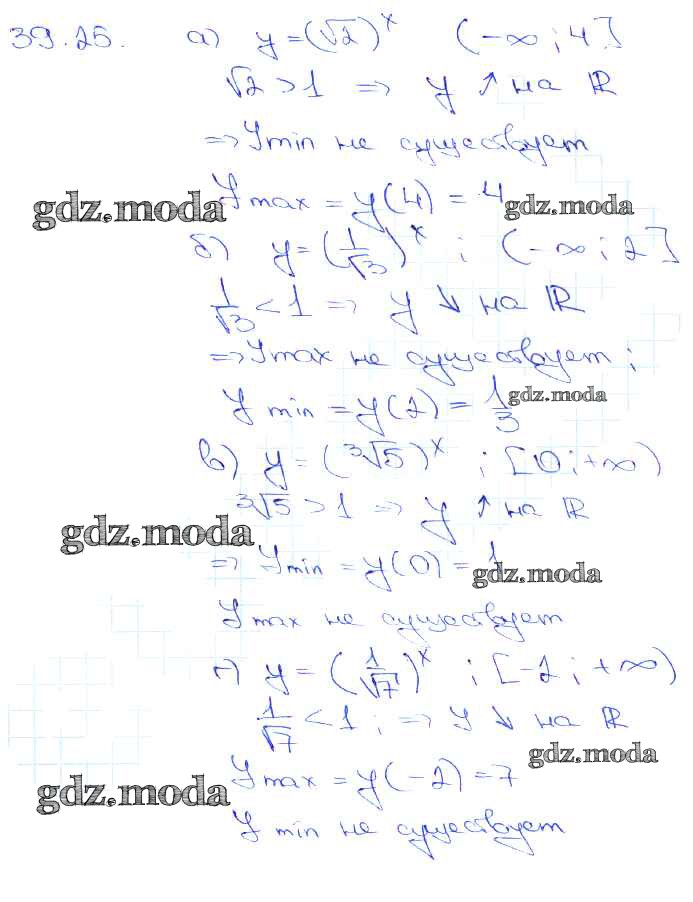 39.25. а) y=(√2)^x (-∞; 4]
√2 > 1 ⇒ y ↑ на ℝ
⇒ y min не существует
y max = y(4) = 4
gdz.moda gdz.moda
б) y=(1/√3)^x ; (-∞; 2]
1/√3 < 1 ⇒ y ↘ на ℝ
⇒ y max не существует;
y min = y(2) = 1/3
gdz.moda
в) y=(∛5)^x ; [0; +∞)
∛5 > 1 ⇒ y ↑ на ℝ
gdz.moda
⇒ y min = y(0) = 1
gdz.moda
y max не существует
г) y=(1/√7)^x ; [-2; +∞)
1/√7 < 1; ⇒ y ↘ на ℝ
gdz.moda
y max = y(-2) = 7
gdz.moda
y min не существует